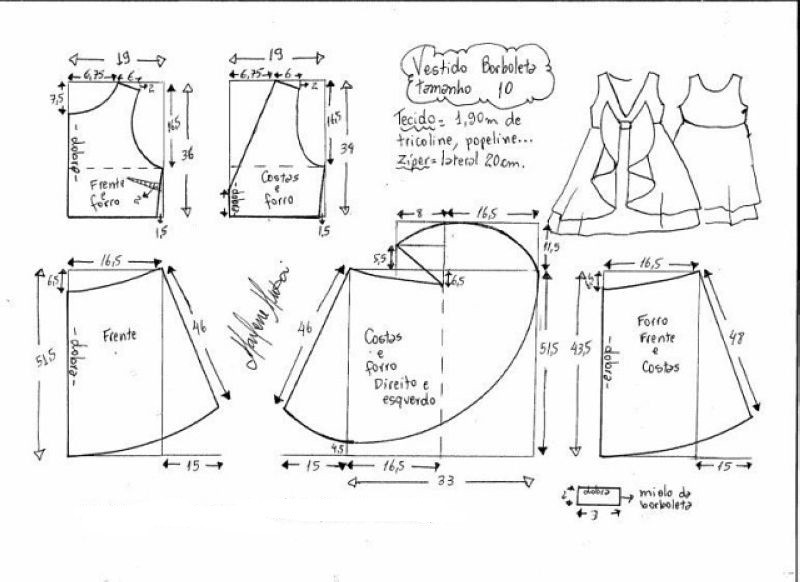 Vestido Borboleta
tamanho 10
Tecido = 1,90m de
tricoline, popeline...
Zíper = lateral 20cm.
19
6,75 6
2
7,5
16,5
36
- dobra -
Frente
e
forro
2
1,5
19
6,75 6
2
16,5
34
Costas
e
forro
- dobra -
1,5
16,5
6,5
51,5
- dobra -
Frente
46
15
8 16,5
11,5
5,5
6,5
46
Costas
e
forro
Direito e
esquerdo
51,5
4,5
15 16,5
33
16,5
43,5
- dobra -
Forro
Frente
e
Costas
48
15
dobra
3
miolo da
borboleta